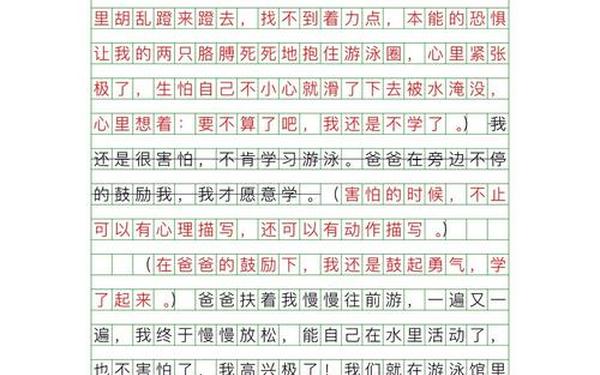 里胡乱蹬来蹬去，找不到着力点，本能的恐惧
让我的两只胳膊死死地抱住游泳圈，心里紧张
极了，生怕自己不小心就滑了下去被水淹没，
心里想着：要不算了吧，我还是不学了。）我
还是很害怕，不肯学习游泳。爸爸在旁边不停
的鼓励我，我才愿意学。（害怕的时候，不止
可以有心理描写，还可以有动作描写。）
（在爸爸的鼓励下，我还是鼓起勇气，学
了起来。）爸爸扶着我慢慢往前游，一遍又一
遍，我终于慢慢放松，能自己在水里活动了，
也不害怕了，我高兴极了！我们就在游泳馆里